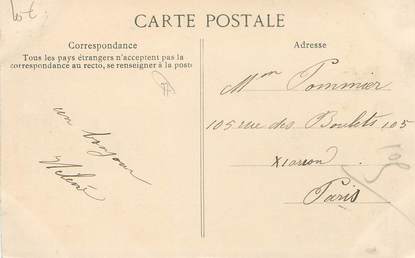 Lot
CARTE POSTALE
Correspondance
Tous les pays étrangers n'acceptent pas la
correspondance au recto, se renseigner à la poste
un bonjour
Helene
Adresse
Mme Pommier
105 rue des Boulets 105
XI arron
Paris